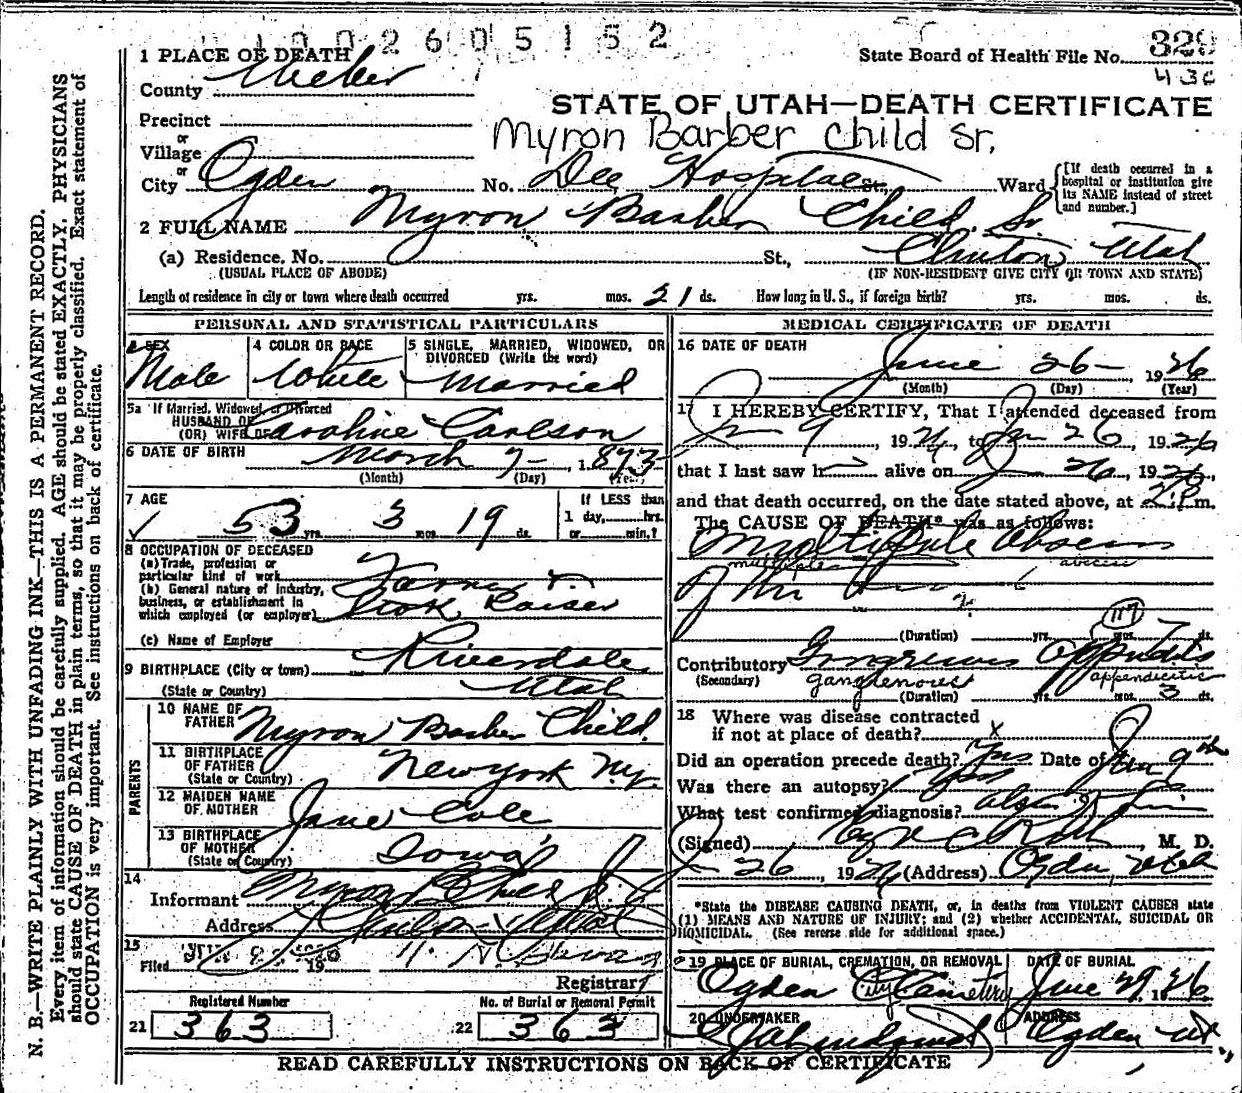 1 0 0 2 6 0 5 1 5 2
1 PLACE OF DEATH
State Board of Health File No. 329
430
County Weber
STATE OF UTAH—DEATH CERTIFICATE
Precinct
Myron Barber Child Sr.
or
Village
or
City Ogden No. Dee Hospital St., Ward
[If death occurred in a hospital or institution give its NAME instead of street and number.]
2 FULL NAME Myron Barber Child Sr
(a) Residence, No. St., Clinton Utah
(USUAL PLACE OF ABODE) (IF NON-RESIDENT GIVE CITY OR TOWN AND STATE)
Length of residence in city or town where death occurred yrs. mos. 21 ds. How long in U. S., if foreign birth? yrs. mos. ds.
PERSONAL AND STATISTICAL PARTICULARS
3 SEX
Male
4 COLOR OR RACE
White
5 SINGLE, MARRIED, WIDOWED, OR DIVORCED (Write the word)
Married
5a If Married, Widowed, or Divorced
HUSBAND OF
(OR) WIFE OF Caroline Carlson
6 DATE OF BIRTH March 7 - 1873
(Month) (Day) (Year)
7 AGE
53 yrs. 3 mos. 19 ds.
If LESS than
1 day, hrs.
or min.?
8 OCCUPATION OF DECEASED
(a) Trade, profession or
particular kind of work Farmer &
(b) General nature of industry,
business, or establishment in
which employed (or employer) Stock Raiser
(c) Name of Employer
9 BIRTHPLACE (City or town) Riverdale
(State or Country) Utah
PARENTS
10 NAME OF FATHER Myron Barber Child
11 BIRTHPLACE OF FATHER
(State or Country) New York N.Y.
12 MAIDEN NAME OF MOTHER Jane Cole
13 BIRTHPLACE OF MOTHER
(State or Country) Iowa
14
Informant Myron B Child Jr
Address Clinton Utah
15
Filed 19
Registrar
Registered Number
21 363
No. of Burial or Removal Permit
22 363
MEDICAL CERTIFICATE OF DEATH
16 DATE OF DEATH
June 26 - 1926
(Month) (Day) (Year)
17 I HEREBY CERTIFY, That I attended deceased from
Jun 9, 1926, to Jun 26, 1926
that I last saw h alive on J 26, 1926
and that death occurred, on the date stated above, at 2:P m.
The CAUSE OF DEATH* was as follows:
Multiple Abscess
multiple abscess
of the
(Duration) yrs. mos. 7 ds.
117
Contributory Gangrenous Appendicitis
(Secondary) gangrenous appendicitis
(Duration) yrs. mos. 3 ds.
18 Where was disease contracted
if not at place of death? x
Did an operation precede death? Yes Date of Jun 9th
Was there an autopsy? Yes
What test confirmed diagnosis?
(Signed) , M. D.
J 26, 1926 (Address) Ogden, Utah
*State the DISEASE CAUSING DEATH, or, in deaths from VIOLENT CAUSES state
(1) MEANS AND NATURE OF INJURY; and (2) whether ACCIDENTAL, SUICIDAL OR
HOMICIDAL. (See reverse side for additional space.)
19 PLACE OF BURIAL, CREMATION, OR REMOVAL
Ogden City Cemetery
DATE OF BURIAL
June 29, 1926
20 UNDERTAKER
ADDRESS
Ogden Ut
READ CAREFULLY INSTRUCTIONS ON BACK OF CERTIFICATE
N. B.—WRITE PLAINLY WITH UNFADING INK—THIS IS A PERMANENT RECORD.
Every item of information should be carefully supplied. AGE should be stated EXACTLY. PHYSICIANS
should state CAUSE OF DEATH in plain terms, so that it may be properly classified. Exact statement of
OCCUPATION is very important. See instructions on back of certificate.